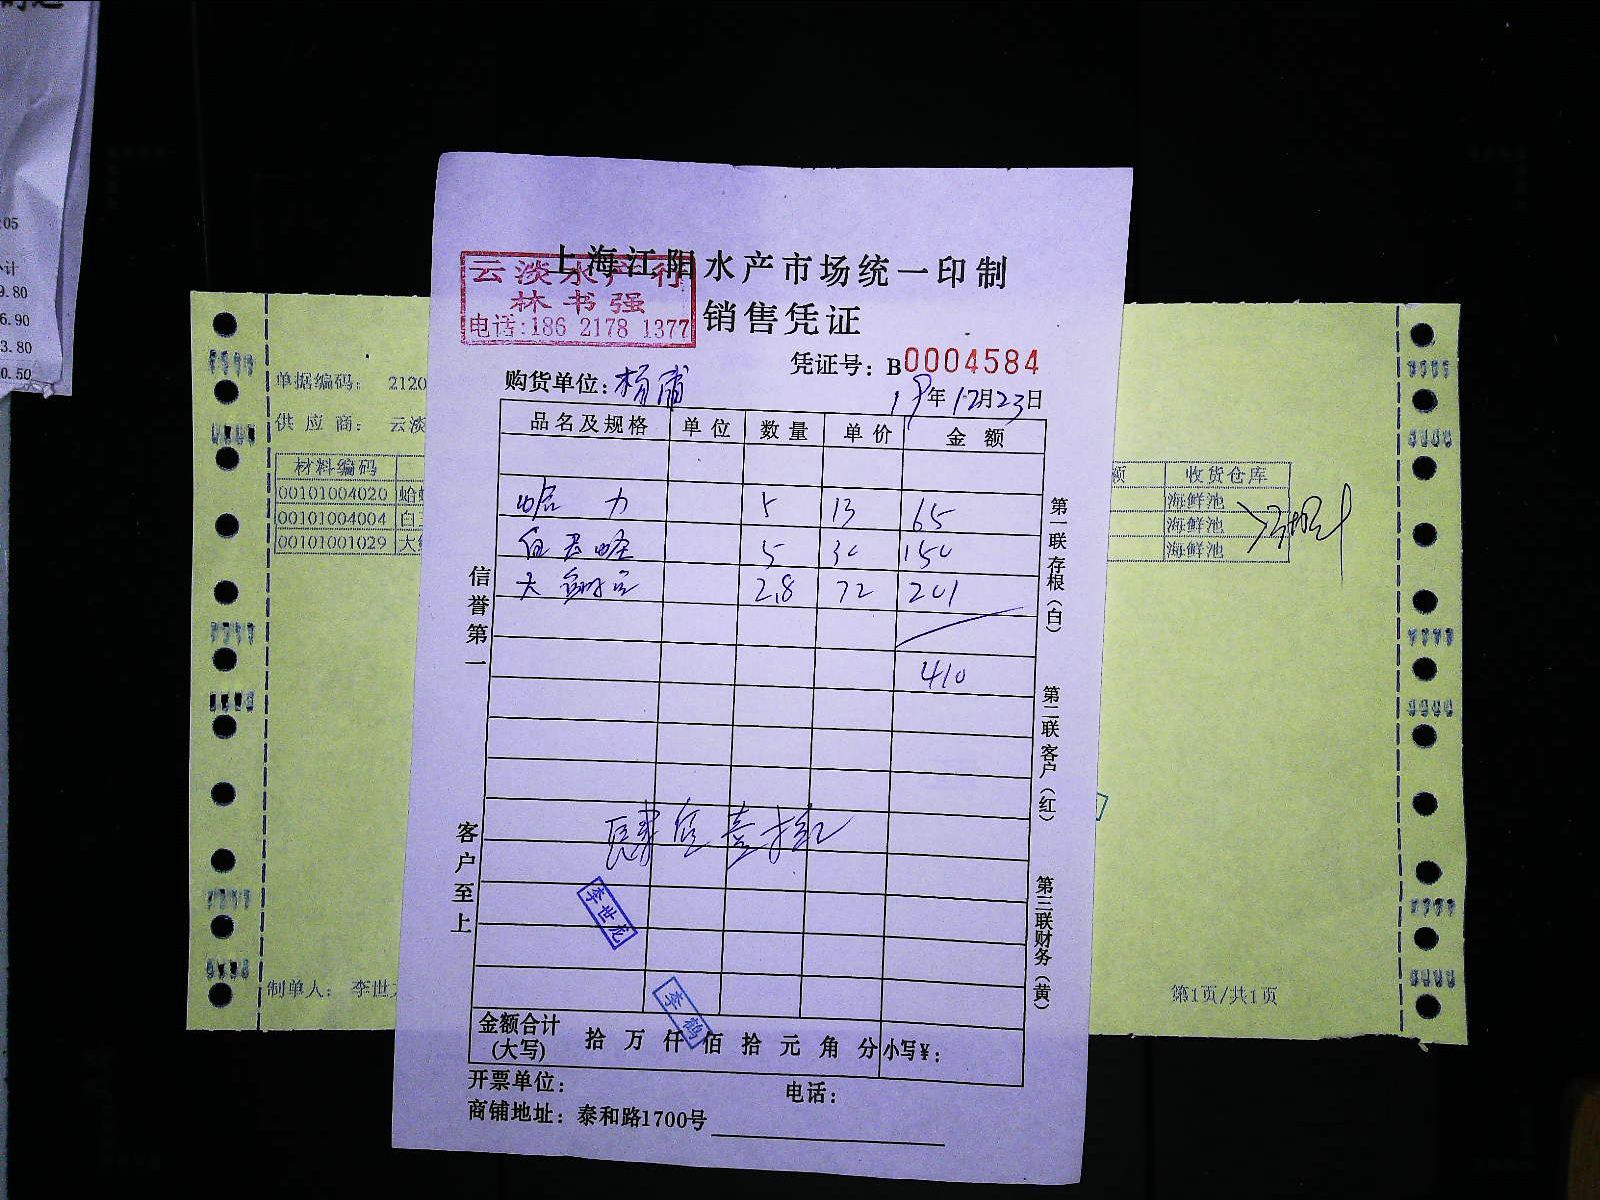 :05
小计
9.80
6.90
3.80
0.50
上海江阳水产市场统一印制
云淡水产行
林书强
电话:186 2178 1377
销售凭证
凭证号: B0004584
购货单位: 杨浦
19年12月23日
品名及规格 单位 数量 单价 金额
哈 力 5 13 65
白玉蛏 5 30 150
大 2.8 72 201
410
肆佰壹拾
信誉第一
客户至上
第一联存根(白)
第二联客户(红)
第三联财务(黄)
李世龙
李鹤
金额合计
(大写)
拾 万 仟 佰 拾 元 角 分 小写¥:
开票单位:
电话:
商铺地址: 泰和路1700号
单据编码: 2120
供 应 商: 云淡
材料编码
00101004020 蛤
00101004004 白
00101001029 大
额 收货仓库
海鲜池
海鲜池
海鲜池
制单人: 李世
第1页/共1页